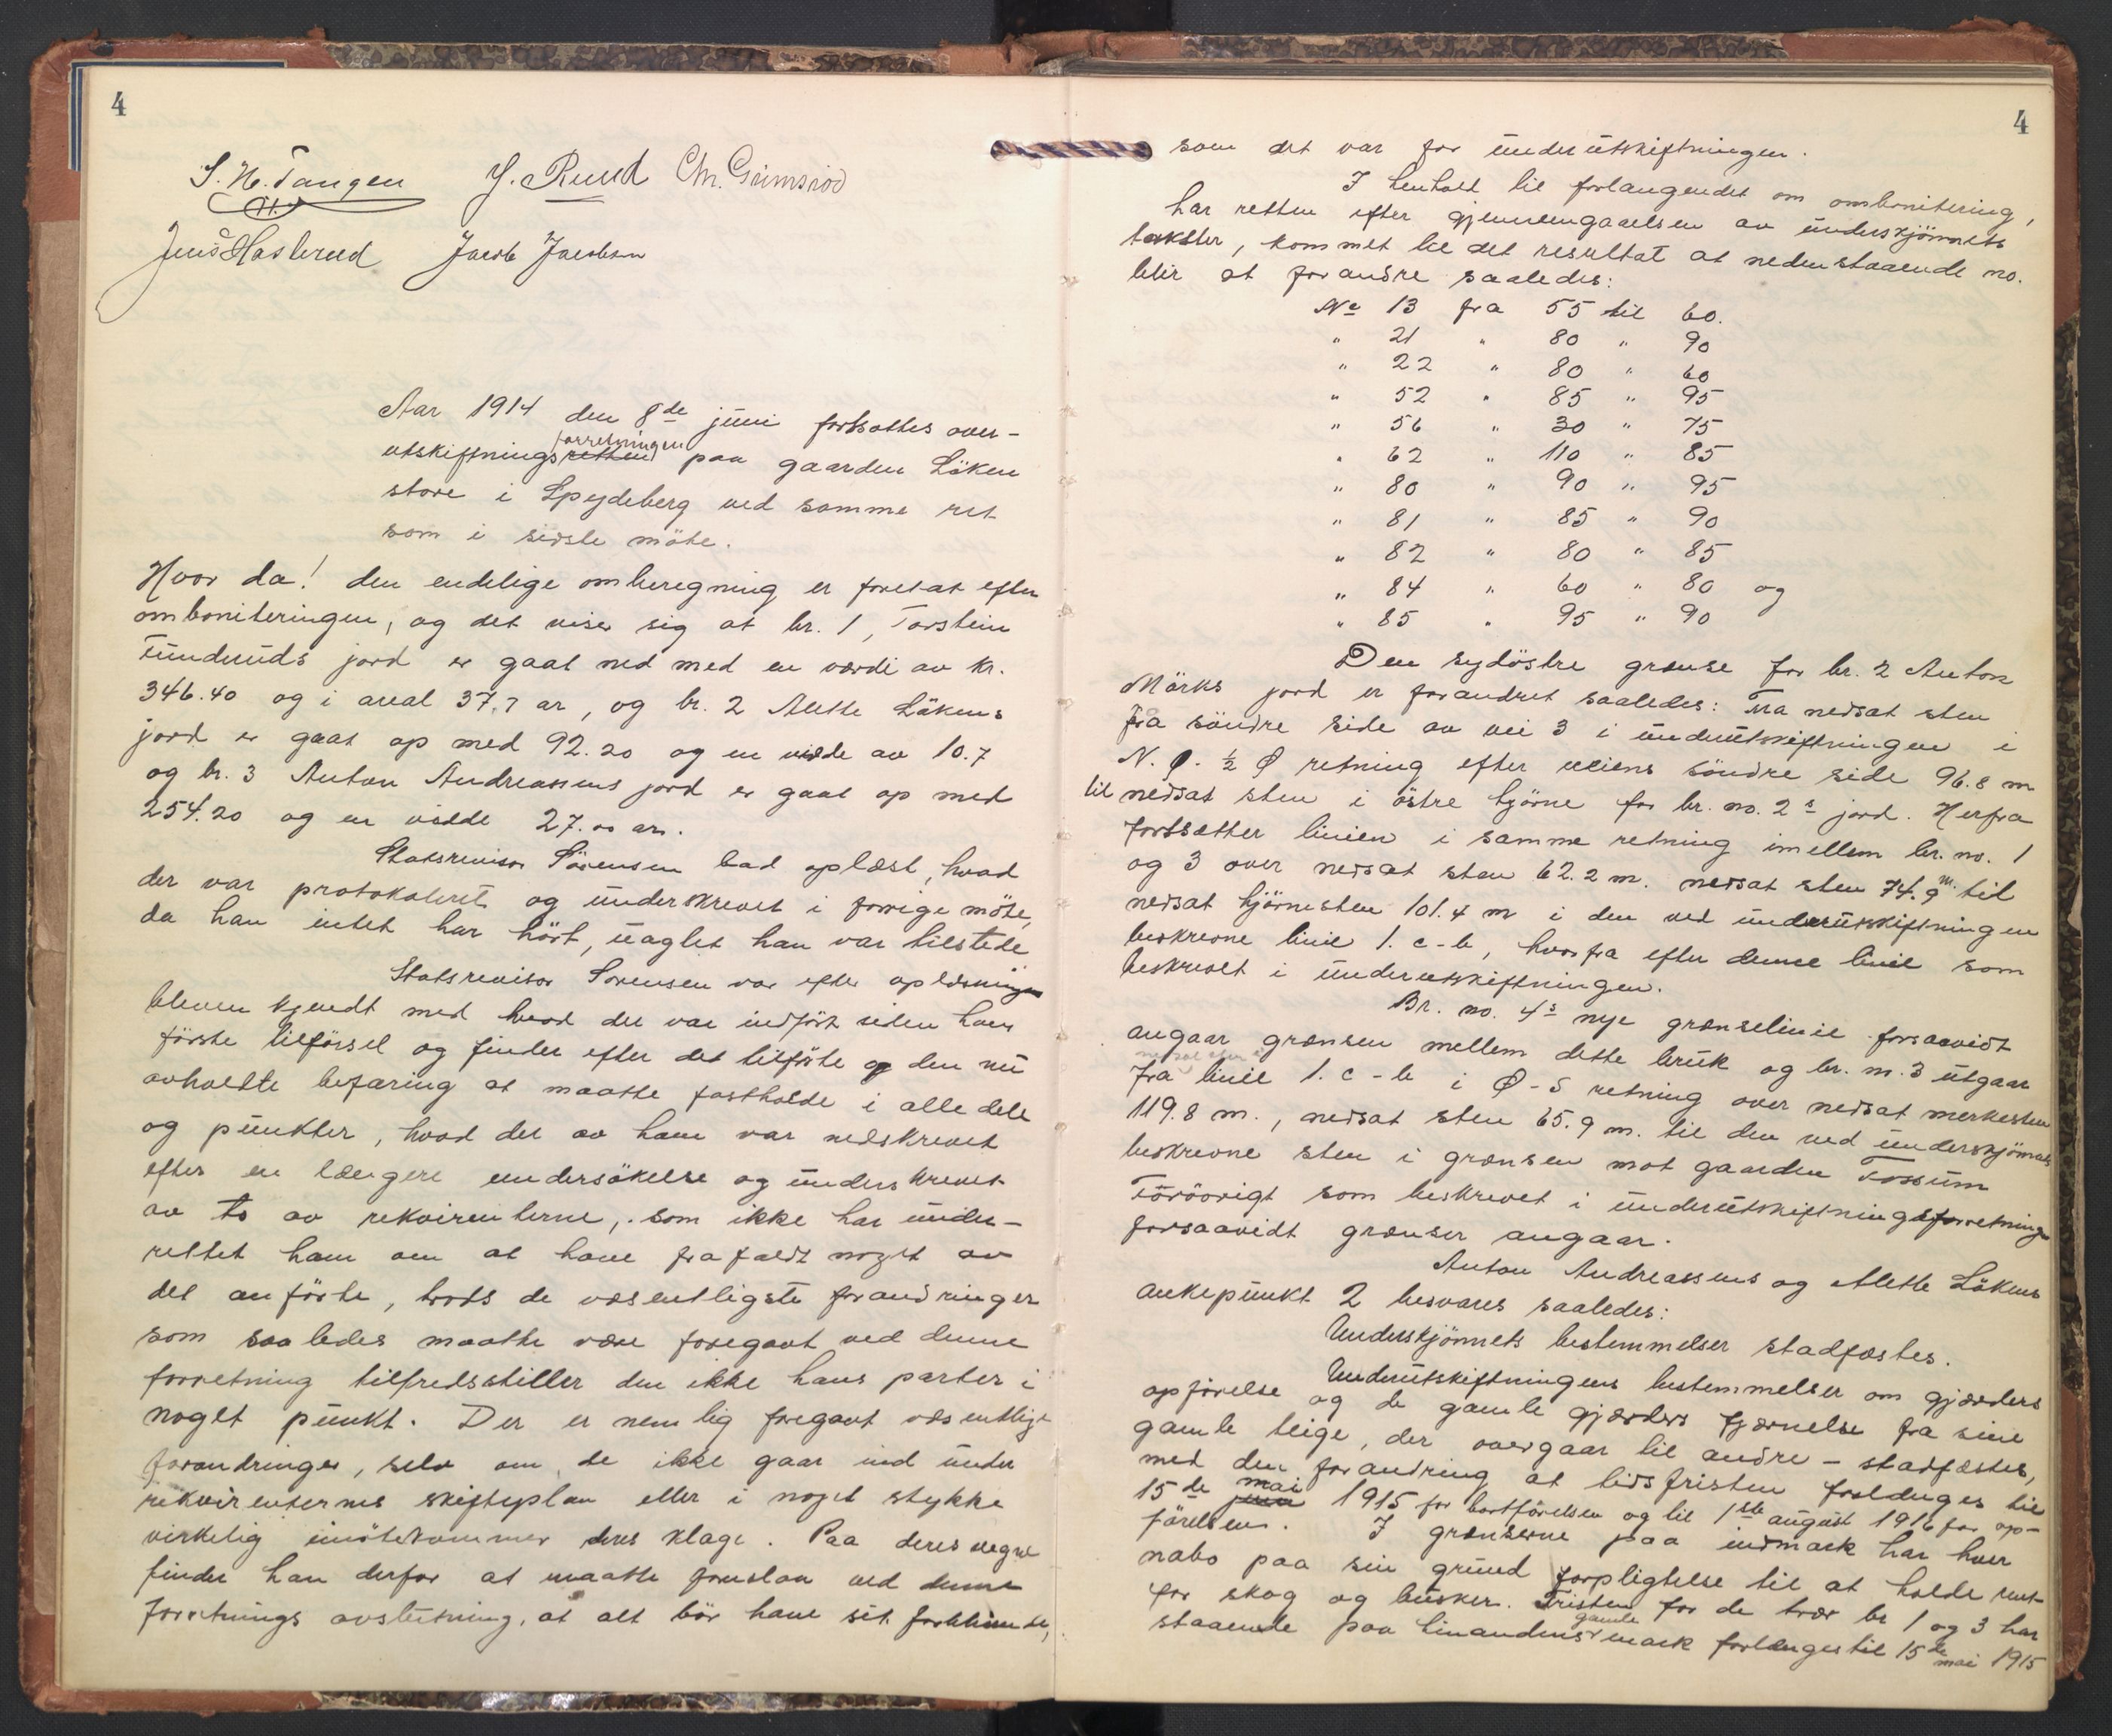 4
S. H. Tangen J. Ruud Chr. Grimsrød
Jens Haslerud Jacob Jacobsen
Aar 1914 den 8de juni fortsattes over-
utskiftningsretten forretningen paa gaarden Løken
store i Spydeberg ved samme ret
som i sidste møte.
Hvor da! den endelige omberegning er foretat efter
omboniteringen, og det viser sig at br. 1, Torstein
jord er gaat ned med en værdi av kr.
346.40 og i areal 37.7 ar, og br. 2 Alette Løkens
jord er gaat op med 92.20 og en vidde av 10.7
og br. 3 Anton Andreassens jord er gaat op med
254.20 og en vidde 27.00 ar.
Statsrevisor Sörensen bad oplæst, hvad
der var protokoleret og underskrevet i forrige möte,
da han intet har hört, uagtet han var tilstede
Statsrevisor Sörensen var efter oplæsningen
bleven kjendt med hvad der var indfört siden hans
förste tilförsel og finder efter det tilförte og den nu
avholdte befaring at maatte fastholde i alle dele
og punkter, hvad der av ham var nedskrevet
efter en længere undersökelse og underskrevet
av to av rekvirenterne, som ikke har under-
rettet ham om at have frafaldt noget av
det anförte, trods de væsentligste forandringer
som saaledes maatte være foregaat ved denne
forretning tilfredsstiller den ikke hans parter i
noget punkt. Der er nemlig foregaat væsentlige
forandringer, selv om de ikke gaar ind under
rekvirenternes skifteplan eller i noget stykke
virkelig imötekommer deres klage. Paa deres vegne
finder han derfor at maatte foreslaa ved denne
forretnings avslutning, at alt bör have sit forblivende,
4
som det var för underutskiftningen.
I henhold til forlangendet om ombonitering,
har retten efter gjennemgaaelsen av underskjönnets
takster, kommet til det resultat at nedenstaaende no.
blir at forandre saaledes:
No 13 fra 55 til 60.
" 21 " 80 " 90
" 22 " 80 " 60
" 52 " 85 " 95
" 56 " 30 " 75
" 62 " 110 " 85
" 80 " 90 " 95
" 81 " 85 " 90
" 82 " 80 " 85
" 84 " 60 " 80 og
" 85 " 95 " 90
Den sydöstre grænse for br. 2 Anton
Mörks jord er forandret saaledes: Fra nedsat sten
fra söndre side av vei 3 i underutskiftningen i
N. Ø. ½ Ø retning efter veiens söndre side 96.8 m
til nedsat sten i östre hjörne for br. no. 2s jord. Herfra
fortsætter linien i samme retning imellem br. no. 1
og 3 over nedsat sten 62.2 m. nedsat sten 74.9 m. til
nedsat hjörnesten 101.4 m i den ved underutskiftningen
beskrevne linie 1. c-b, hvorfra efter denne linie som
beskrevet i underutskiftningen.
Br. no. 4s nye grænselinie forsaavidt
angaar grænsen mellem dette bruk og br. no. 3 utgaar
fra nedsat sten i linie 1. c-b i Ø-S retning over nedsat merkesten
119.8 m., nedsat sten 65.9 m. til den ved underskjönnet
beskrevne sten i grænsen mot gaarden Fossum
Forövrigt som beskrevet i underutskiftningsforretning
forsaavidt grænser angaar.
Anton Andreassens og Alette Løkens
ankepunkt 2 besvares saaledes:
Underskjönnets bestemmelser stadfæstes.
Underutskiftningens bestemmelser om gjærders
opförelse og de gamle gjærders fjernelse fra sine
gamle teige, der overgaar til andre – stadfæstes,
med den forandring at tidsfristen forlænges til
15de juni mai 1915 for bortförelsen og til 1ste august 1916 for op-
förelsen. I grænserne paa indmark har hver
nabo paa sin grund forpligtelse til at holde rent
for skog og busker. Fristen for de trær br 1 og 3 har
staaende paa hinandens gamle mark forlænges til 15de mai 1915